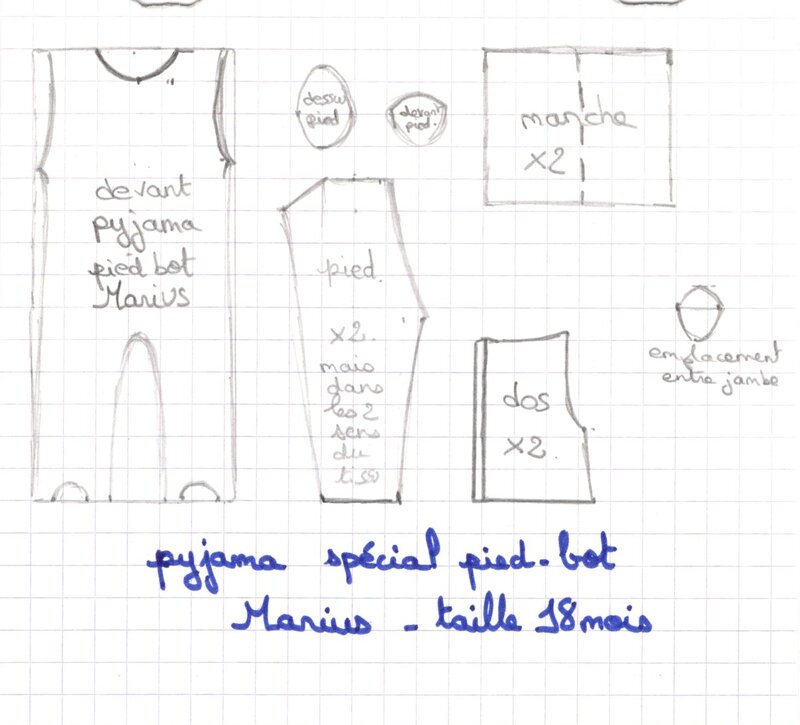 dessus
pied
devant
pied.
manche
x2
devant
pyjama
pied bot
Marius
pied.
x2.
mais
dans
les 2
sens
du
tissu
dos
x2.
emplacement
entre jambe
pyjama spécial pied-bot
Marius - taille 18 mois